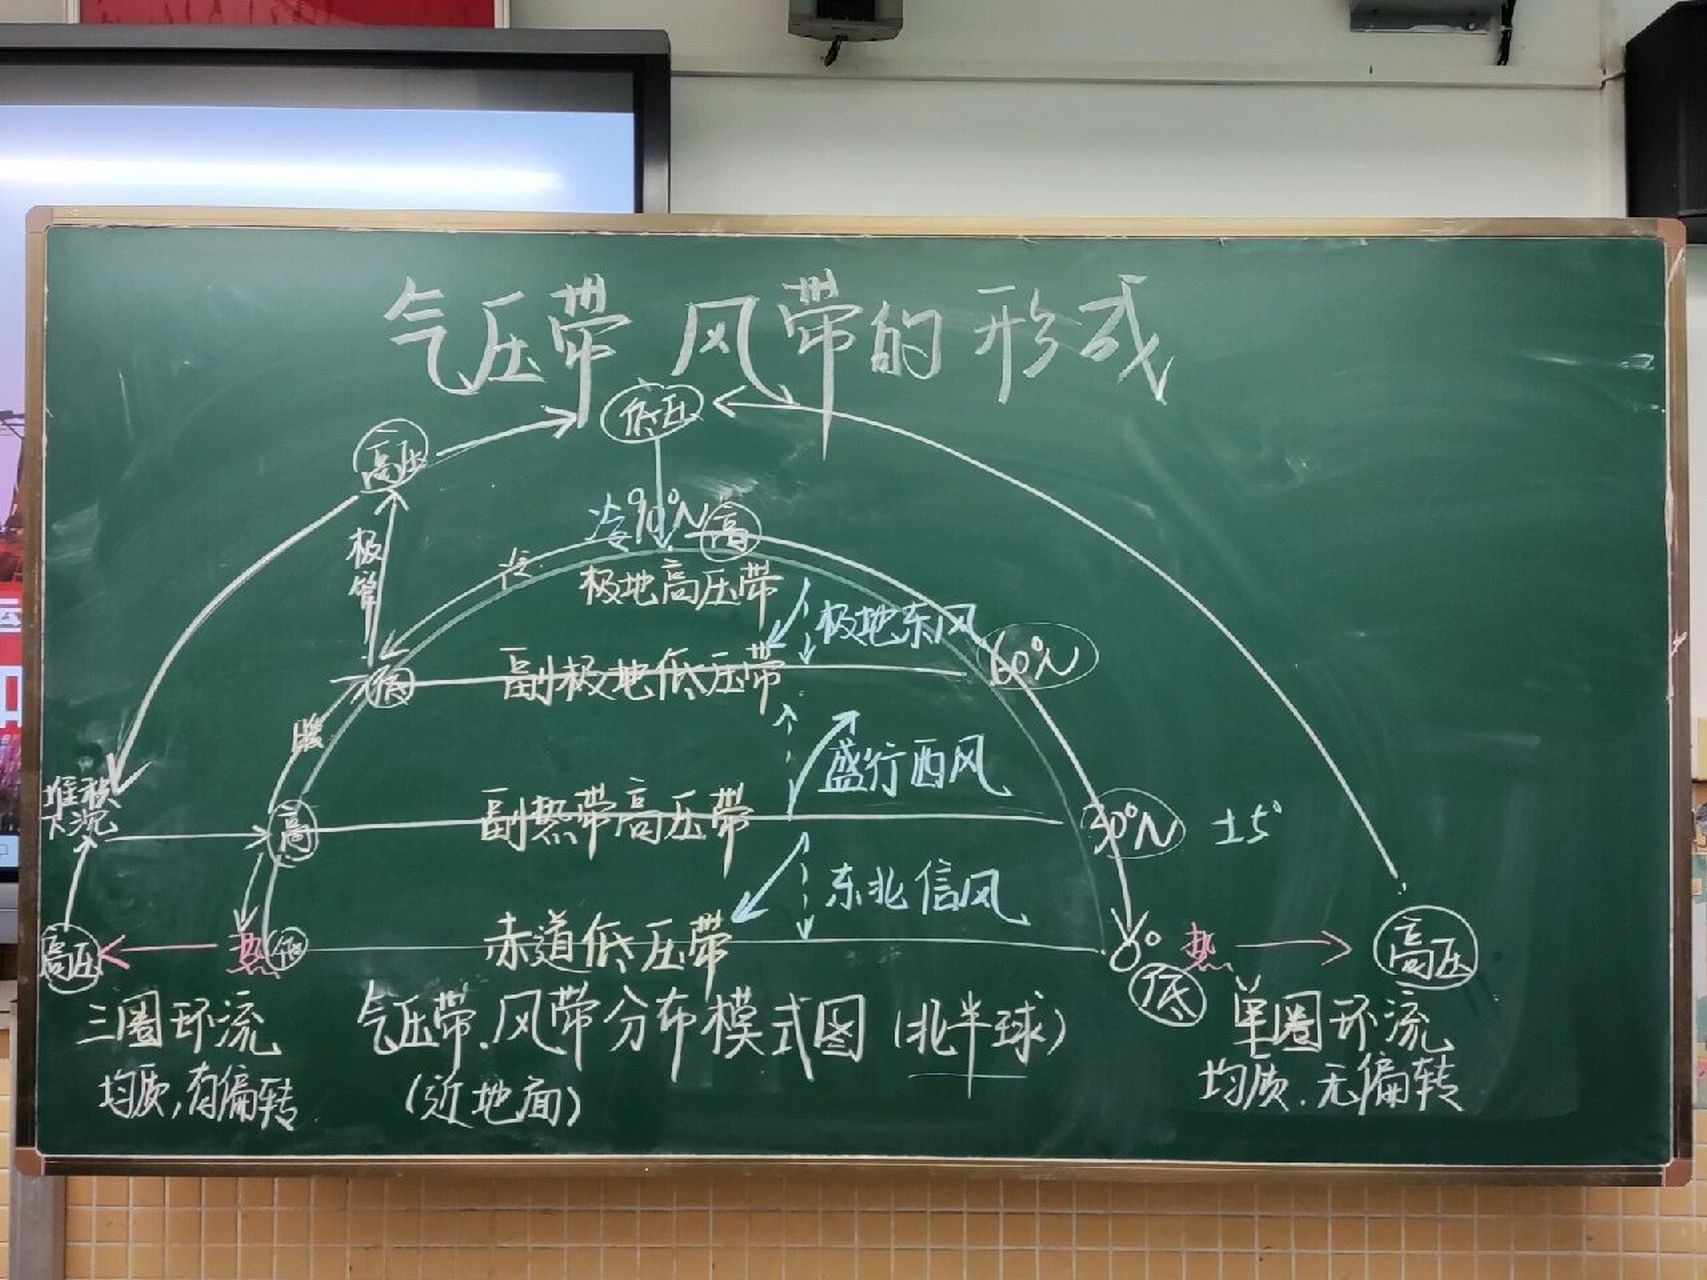 气压带 风带的形成
低压
高压
冷 90°N 高
极管
冷
极地高压带
极地东风
副极地低压带
60°N
低
暖
盛行西风
堆积
下沉
高
副热带高压带
30°N ±5°
东北信风
高压 热 低
赤道低压带
0° 热 高压
低
三圈环流
均质,有偏转
气压带、风带分布模式图(北半球)
(近地面)
单圈环流
均质.无偏转